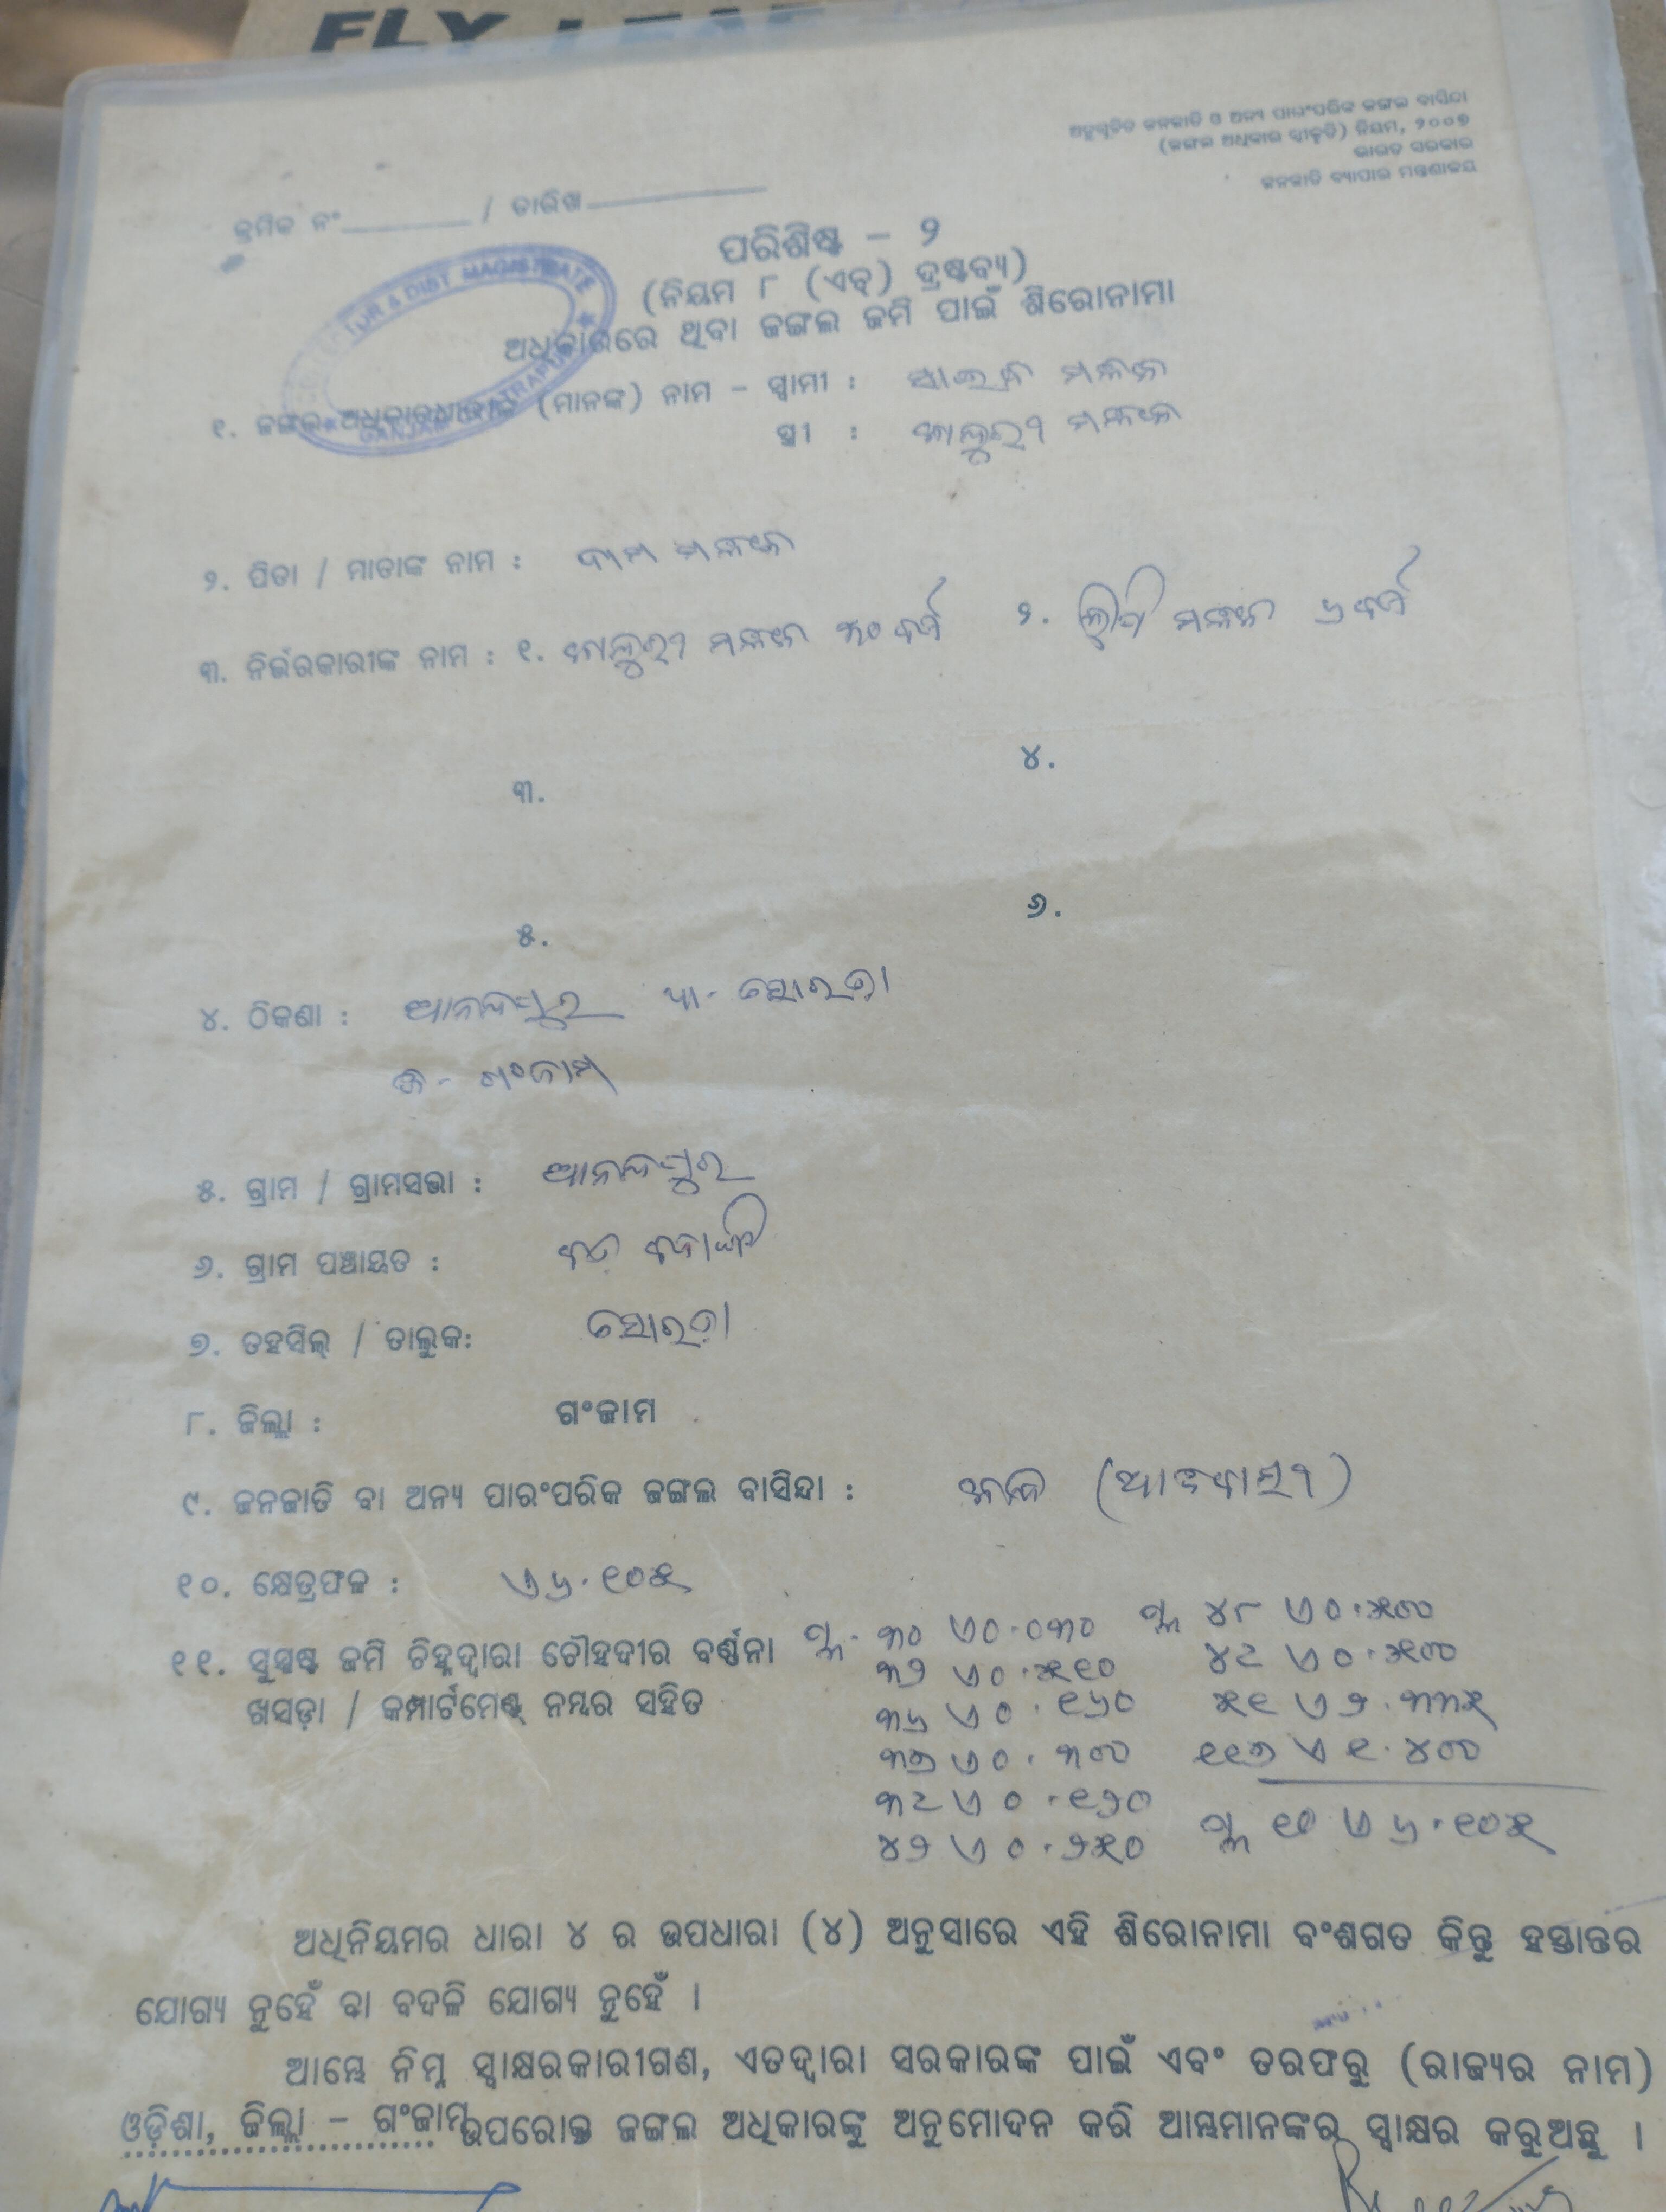 ଅନୁସୂଚିତ ଜନଜାତି ଓ ଅନ୍ୟ ପାରଂପରିକ ଜଙ୍ଗଲ ବାସିନ୍ଦା
(ଜଙ୍ଗଲ ଅଧିକାର ସ୍ୱୀକୃତି) ନିୟମ, ୨୦୦୭
ଭାରତ ସରକାର
ଜନଜାତି ବ୍ୟାପାର ମନ୍ତ୍ରଣାଳୟ
କ୍ରମିକ ନଂ / ତାରିଖ
ପରିଶିଷ୍ଟ – ୨
(ନିୟମ ୮ (ଏଚ୍) ଦ୍ରଷ୍ଟବ୍ୟ)
ଅଧିକାରରେ ଥିବା ଜଙ୍ଗଲ ଜମି ପାଇଁ ଶିରୋନାମା
& DIST MAGISTRATE
୧. ଜଙ୍ଗଲ ଅଧିକାରଧାରୀଙ୍କ (ମାନଙ୍କ) ନାମ – ସ୍ୱାମୀ :
ସ୍ତ୍ରୀ :
୨. ପିତା / ମାତାଙ୍କ ନାମ :
୩. ନିର୍ଭରକାରୀଙ୍କ ନାମ : ୧. ୩୦ ବର୍ଷ ୨. ୬ ବର୍ଷ
୩. ୪.
୫. ୬.
୪. ଠିକଣା : ଆନନ୍ଦପୁର ଥା- ସୋରଡ଼ା
ଜି- ଗଂଜାମ
୫. ଗ୍ରାମ / ଗ୍ରାମସଭା : ଆନନ୍ଦପୁର
୬. ଗ୍ରାମ ପଞ୍ଚାୟତ :
୭. ତହସିଲ୍ / ତାଲୁକ: ସୋରଡ଼ା
୮. ଜିଲ୍ଲା : ଗଂଜାମ
୯. ଜନଜାତି ବା ଅନ୍ୟ ପାରଂପରିକ ଜଙ୍ଗଲ ବାସିନ୍ଦା : (ଆଦିବାସୀ)
୧୦. କ୍ଷେତ୍ରଫଳ : ଏ ୬.୧୦୫
୧୧. ସୁସ୍ପଷ୍ଟ ଜମି ଚିହ୍ନଦ୍ୱାରା ଚୌହଦୀର ବର୍ଣ୍ଣନା ପ୍ଲ- ୩୦ ଏ ୦.୦୩୦ ପ୍ଲ ୪୮ ଏ ୦.୫୦୦
୩୨ ଏ ୦.୫୧୦ ୪୯ ଏ ୦.୫୦୦
ଖସଡ଼ା / କମ୍ପାର୍ଟମେଣ୍ଟ୍ ନମ୍ବର ସହିତ ୩୬ ଏ ୦.୧୬୦ ୫୧ ଏ ୨.୩୩୫
୩୭ ଏ ୦.୩୦୦ ୧୧୭ ଏ ୧.୪୦୦
୩୯ ଏ ୦.୧୨୦
୪୨ ଏ ୦.୨୫୦ ପ୍ଲ ୧୦ ଏ ୬.୧୦୫
ଅଧିନିୟମର ଧାରା ୪ ର ଉପଧାରା (୪) ଅନୁସାରେ ଏହି ଶିରୋନାମା ବଂଶଗତ କିନ୍ତୁ ହସ୍ତାନ୍ତର
ଯୋଗ୍ୟ ନୁହେଁ ବା ବଦଳି ଯୋଗ୍ୟ ନୁହେଁ ।
ଆମ୍ଭେ ନିମ୍ନ ସ୍ୱାକ୍ଷରକାରୀଗଣ, ଏତଦ୍ୱାରା ସରକାରଙ୍କ ପାଇଁ ଏବଂ ତରଫରୁ (ରାଜ୍ୟର ନାମ)
ଓଡ଼ିଶା, ଜିଲ୍ଲା – ଗଂଜାମ ଉପରୋକ୍ତ ଜଙ୍ଗଲ ଅଧିକାରଙ୍କୁ ଅନୁମୋଦନ କରି ଆମ୍ଭମାନଙ୍କର ସ୍ୱାକ୍ଷର କରୁଅଛୁ ।